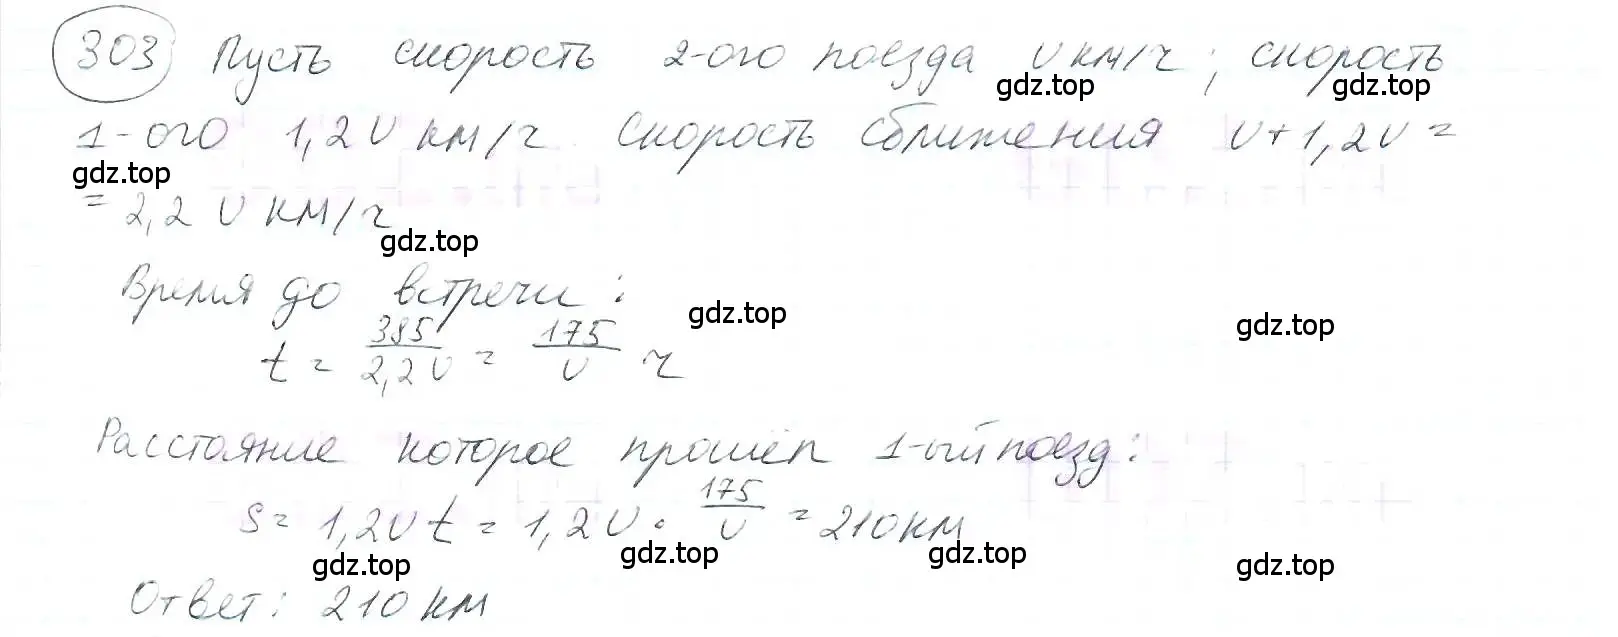 303 Пусть скорость 2-ого поезда v км/ч; скорость
gdz.top gdz.top
1-ого 1,2v км/ч. Скорость сближения v+1,2v=
gdz.top
=2,2 v км/ч
gdz.top
Время до встречи:
gdz.top gdz.top
t = 385/2,2v = 175/v ч
Расстояние которое прошёл 1-ый поезд:
s= 1,2v t = 1,2v · 175/v = 210км
gdz.top gdz.top gdz.top gdz.top
Ответ: 210 км